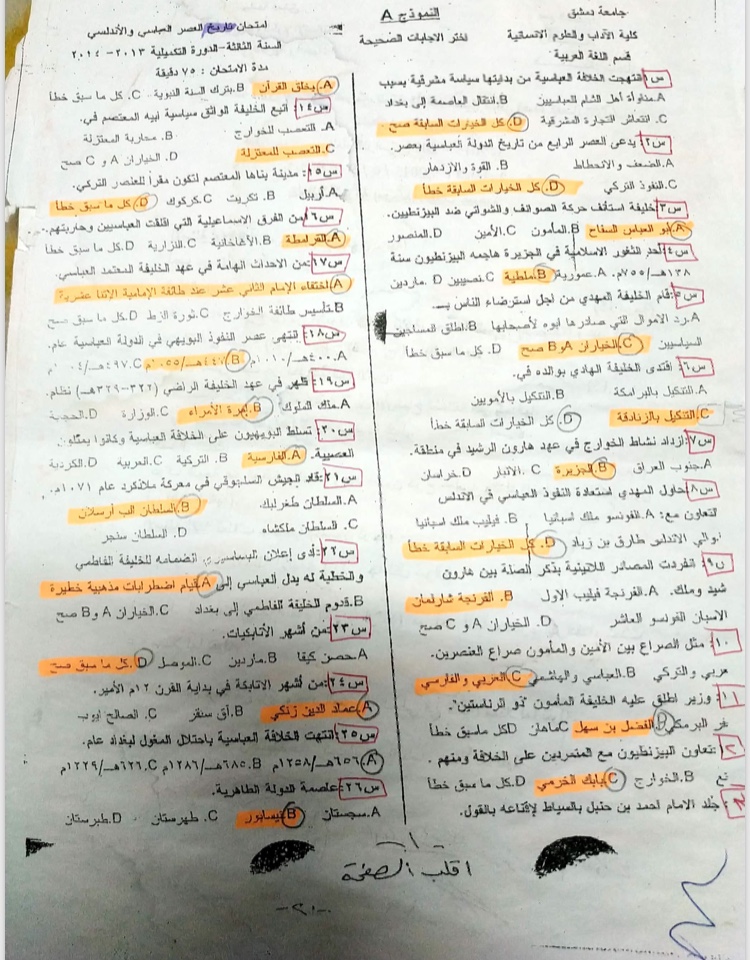 جامعة دمشق
كلية الآداب والعلوم الانسانية
قسم اللغة العربية
النموذج A
اختر الاجابات الصحيحة
امتحان تاريخ العصر العباسي والأندلسي
السنة الثالثة-الدورة التكميلية ٢٠١٣-٢٠١٤
مدة الامتحان : ٧٥ دقيقة
س١: انتهجت الخلافة العباسية من بدايتها سياسة مشرقية بسبب
A.مناوأة أهل الشام للعباسيين B.انتقال العاصمة إلى بغداد
C.انتعاش التجارة المشرقية D.كل الخيارات السابقة صح
س٢: يدعى العصر الرابع من تاريخ الدولة العباسية بعصر.
A.الضعف والانحطاط B. القوة والازدهار
C.النفوذ التركي D.كل الخيارات السابقة خطأ
س٣: خليفة استأنف حركة الصوائف والشواتي ضد البيزنطيين.
A.أبو العباس السفاح B.المأمون C.الأمين D.المنصور
س٤: أحد الثغور الاسلامية في الجزيرة هاجمه البيزنطيون سنة
١٣٨هـ/٧٥٥م. A.عمورية B.ملطية C.نصيبين D.ماردين
س٥: قام الخليفة المهدي من اجل استرضاء الناس بـ
A.رد الاموال التي صادرها ابوه لأصحابها B.اطلاق المساجين
السياسيين C.الخياران AوB صح D.كل ما سبق خطأ
س٦: اقتدى الخليفة الهادي بوالده في.
A.التنكيل بالبرامكة B.التنكيل بالأمويين
C.التنكيل بالزنادقة D.كل الخيارات السابقة خطأ
س٧: ازداد نشاط الخوارج في عهد هارون الرشيد في منطقة.
A.جنوب العراق B.الجزيرة C.الانبار D.خراسان
س٨: حاول المهدي استعادة النفوذ العباسي في الاندلس
بالتعاون مع: A.الفونسو ملك اسبانيا B.فيليب ملك اسبانيا
والي الاندلس طارق بن زياد D.كل الخيارات السابقة خطأ
س٩: انفردت المصادر اللاتينية بذكر الصلة بين هارون
شيد وملك. A.الفرنجة فيليب الاول B.الفرنجة شارلمان
الاسبان الفونسو العاشر D.الخياران A و C صح
١٠: مثل الصراع بين الأمين والمأمون صراع العنصرين.
عربي والتركي B.العباسي والهاشمي C.العربي والفارسي
١١: وزير اطلق عليه الخليفة المأمون "ذو الرئاستين".
فر البرمكي B.الفضل بن سهل C.ماهان D.كل ماسبق خطأ
٢: تعاون البيزنطيون مع المتمردين على الخلافة ومنهم.
B.الخوارج C.بابك الخرمي D.كل ما سبق خطأ
: جلد الامام احمد بن حنبل بالسياط لإقناعه بالقول.
A.بخلق القرآن B.بترك السنة النبوية C.كل ما سبق خطأ
س١٤: اتبع الخليفة الواثق سياسة أبيه المعتصم في.
A.التعصب للخوارج B.محاربة المعتزلة
C.التعصب للمعتزلة D.الخياران A و C صح
س١٥: مدينة بناها المعتصم لتكون مقراً للعنصر التركي.
A.أربيل B.تكريت C.كركوك D.كل ما سبق خطأ
س١٦: من الفرق الاسماعيلية التي اقلقت العباسيين وحاربتهم.
A.القرامطة B.الأغاخانية C.النزارية D.كل ما سبق خطأ
س١٧: من الاحداث الهامة في عهد الخليفة المعتمد العباسي.
A.اختفاء الإمام الثاني عشر عند طائفة الإمامية الاثنا عشرية؟
B.تأسيس طائفة الخوارج C.ثورة الزط D.كل ما سبق صح
س١٨: انتهى عصر النفوذ البويهي في الدولة العباسية عام.
A.٤٠٠هـ/١٠١٠م B.٤٤٧هـ/١٠٥٥م C.٤٩٧هـ/
س١٩: ظهر في عهد الخليفة الراضي (٣٢٢-٣٢٩هـ) نظام.
A.ملك الملوك B.إمرة الأمراء C.الوزارة D.الحجابة
س٢٠: تسلط البويهيون على الخلافة العباسية وكانوا يمثلون
العصبية. A.الفارسية B.التركية C.العربية D.الكردية
س٢١: قاد الجيش السلجوقي في معركة ملاذكرد عام ١٠٧١م.
A.السلطان طغرلبك B.السلطان الب أرسلان
C.السلطان ملكشاه D.السلطان سنجر
س٢٢: أدى إعلان البساسيري انضمامه للخليفة الفاطمي
والخطبة له بدل العباسي إلى A.قيام اضطرابات مذهبية خطيرة
B.قدوم الخليفة الفاطمي إلى بغداد C.الخياران A و B صح
س٢٣: من أشهر الأتابكيات.
A.حصن كيفا B.ماردين C.الموصل D.كل ما سبق صح
س٢٤: من أشهر الاتابكة في بداية القرن ١٢م الأمير.
A.عماد الدين زنكي B.أق سنقر C.الصالح ايوب
س٢٥: انتهت الخلافة العباسية باحتلال المغول لبغداد عام.
A.٦٥٦هـ/١٢٥٨م B.٦٨٥هـ/١٢٨٦م C.٦٢٦هـ/١٢٢٩م
س٢٦: عاصمة الدولة الطاهرية.
A.سجستان B.نيسابور C.طهرستان D.طبرستان
-١-
اقلب الصفحة
-٢١-